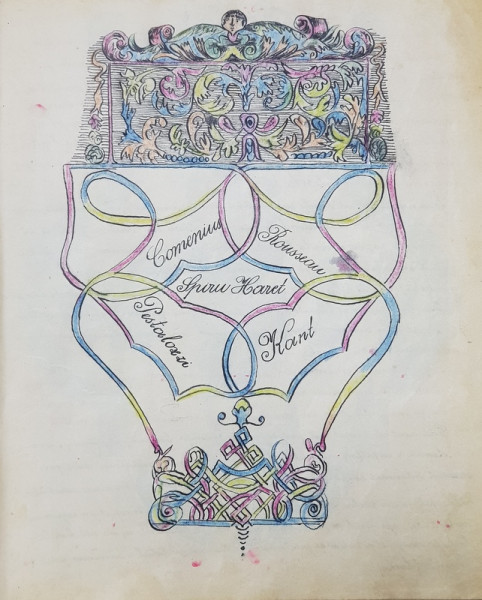 Comenius
Rousseau
Spiru Haret
Pestalozzi
Kant